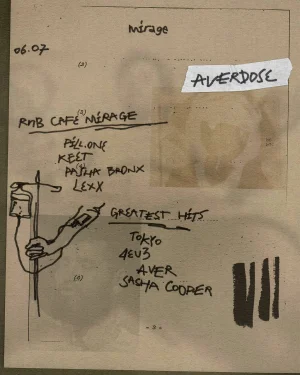 mirage
06.07
AVERDOSE
RNB CAFE MIRAGE
PILL.ONE
KEET
PASHA BRONX
LEXX
GREATEST HITS
TOKYO
4EU3
AVER
SASHA COOPER